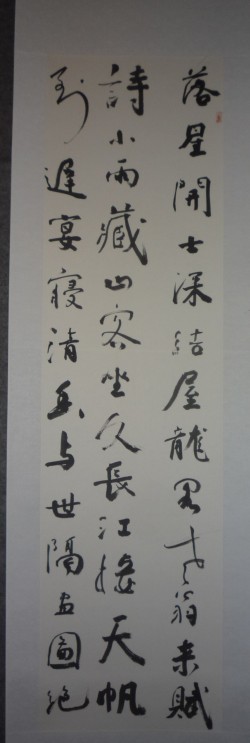 落星開士深結屋龍閣老翁来賦
詩小雨藏山客坐久長江接天帆
到遲宴寝清香与世隔画圖絶